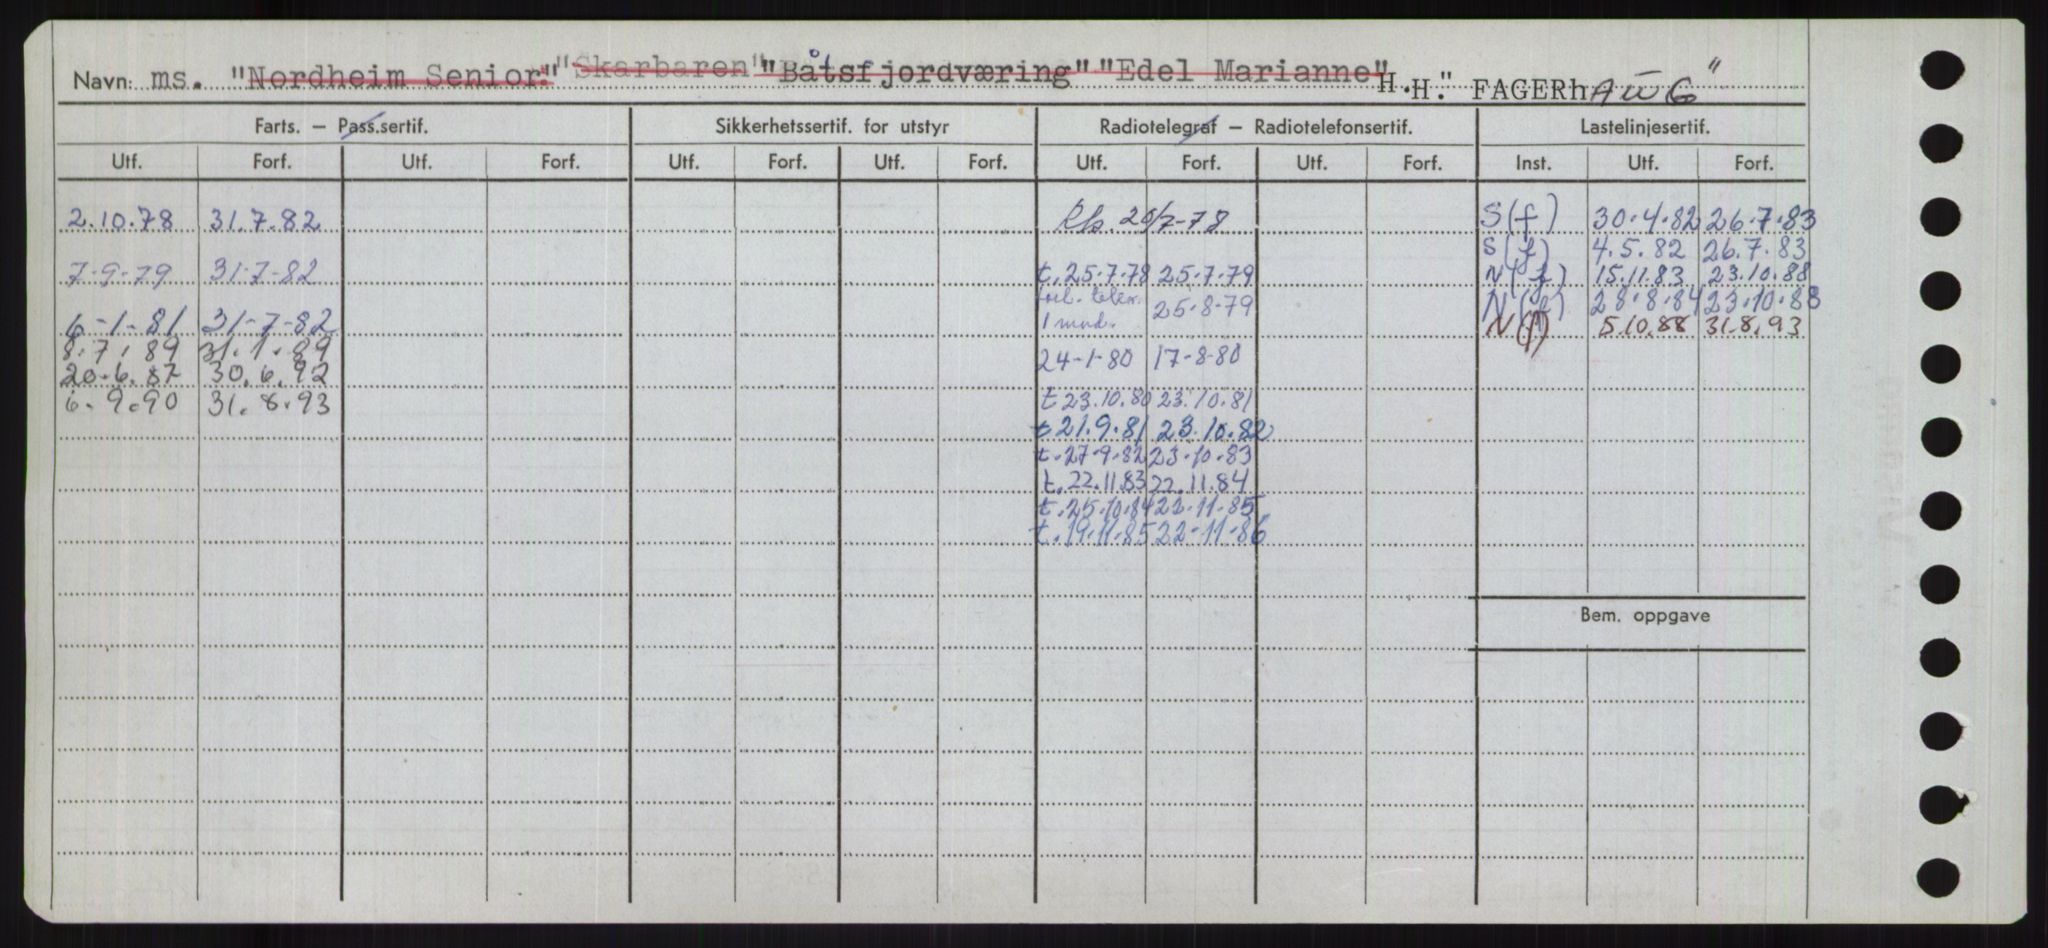 Navn: ms. "Nordheim Senior" "Skarbaren" "Båtsfjordværing" "Edel Marianne" H.H." FAGERhAUG"
Farts. – Pass.sertif. Sikkerhetssertif. for utstyr Radiotelegraf – Radiotelefonsertif. Lastelinjesertif.
Utf. Forf. Utf. Forf. Utf. Forf. Utf. Forf. Utf. Forf. Utf. Forf. Inst. Utf. Forf.
2.10.78 31.7.82 20/7-78 S(f) 30.4.82 26.7.83
S(f) 4.5.82 26.7.83
7-9-79 31-7-82 t.25.7.78 25.7.79 N(f) 15.11.83 23.10.88
1 mnd. 25.8.79 N(f) 28.8.84 23.10.88
6-1-81 31-7-82 N(f) 5.10.88 31.8.93
8.7.89 31.1.89 24-1-80 17-8-80
20.6.87 30.6.92
6.9.90 31.8.93 t 23.10.80 23.10.81
t 21.9.81 23.10.82
t.27.9.82 23.10.83
t.22.11.83 22.11.84
t.25.10.84 22.11.85
t.19.11.85 22-11-86
Bem. oppgave